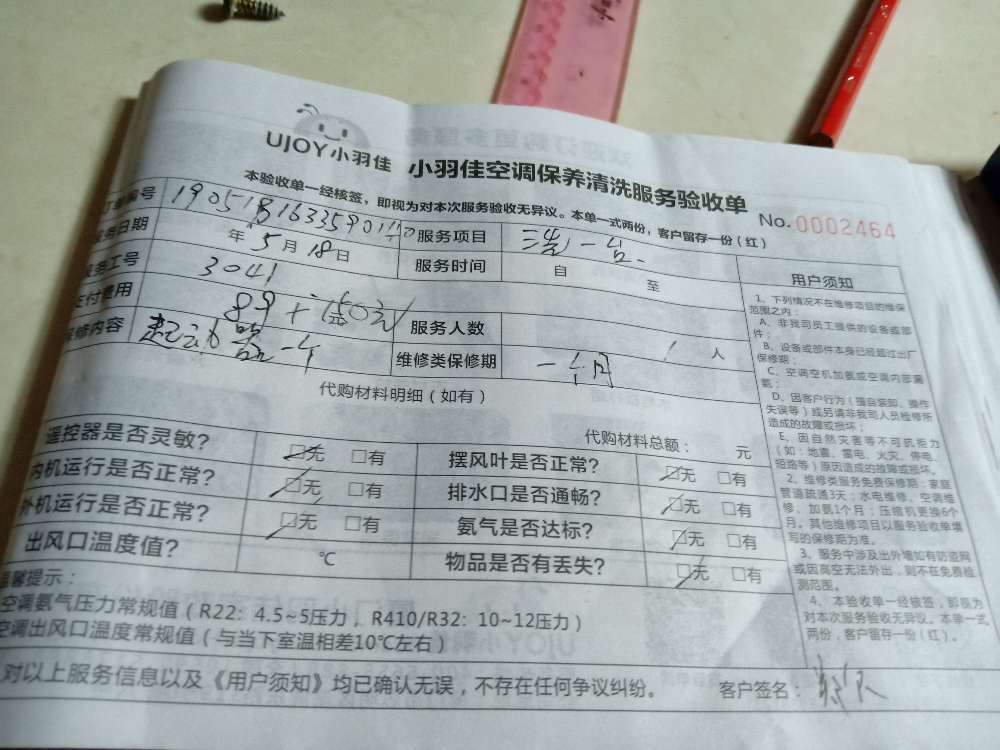 UJOY小羽佳 小羽佳空调保养清洗服务验收单
本验收单一经核签，即视为对本次服务验收无异议。本单一式两份，客户留存一份（红）
No. 0002464
订单编号 服务项目 洗一台
服务日期 年5月18日 服务时间 自 至
服务工号 3041
支付费用 服务人数 1人
保修内容 起动器一个 维修类保修期 一个月
代购材料明细（如有）
代购材料总额： 元
遥控器是否灵敏？ □无 □有 摆风叶是否正常？ □无 □有
内机运行是否正常？ □无 □有 排水口是否通畅？ □无 □有
外机运行是否正常？ □无 □有 氨气是否达标？ □无 □有
出风口温度值？ ℃ 物品是否有丢失？ □无 □有
温馨提示：
空调氨气压力常规值（R22：4.5~5压力，R410/R32：10~12压力）
空调出风口温度常规值（与当下室温相差10℃左右）
对以上服务信息以及《用户须知》均已确认无误，不存在任何争议纠纷。 客户签名：
用户须知
1、下列情况不在维修项目的维保
范围之内：
A、非我司员工提供的设备或部
件；
B、设备或部件本身已经超过出厂
保修期；
C、空调空机加氨或空调内部漏
氨；
D、因客户行为（擅自装卸、操作
失误等）或另请非我司人员检修所
造成的故障或损坏；
E、因自然灾害等不可抗拒力
（如：地震、雷电、火灾、停电、
短路等）原因造成的故障或损坏。
2、维修类服务免费保修期：家庭
管道疏通3天；水电维修、空调维
修、加氨1个月；压缩机更换6个
月。其他维修项目以服务验收单填
写的保修期为准。
3、服务中涉及出外墙如有防盗网
或因高空无法外出，则不在免费检
测范围。
4、本验收单一经核签，即视为
对本次服务验收无异议。本单一式
两份，客户留存一份（红）。